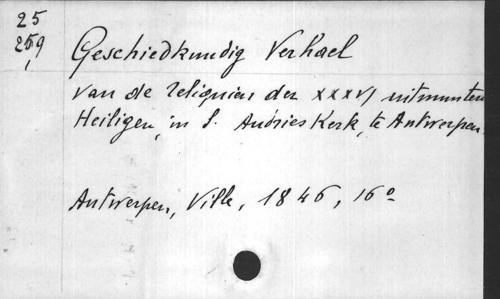 25
259
Geschiedkundig Verhael
van de reliquien der XXXVJ uitmunten
Heiligen, in S. Andries Kerk, te Antwerpen.
Antwerpen, Ville, 1846, 16º